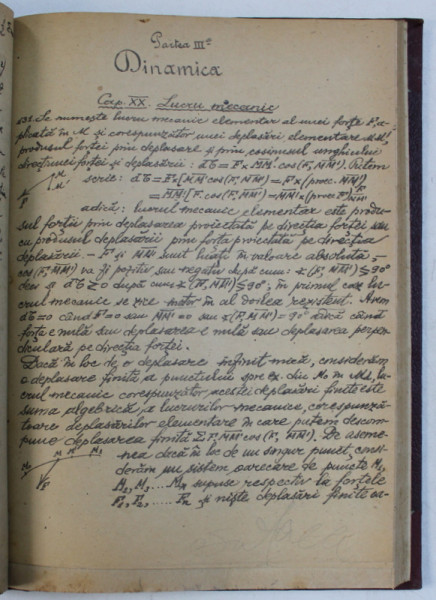 Partea IIIa
Dinamica
Cap. XX. Lucru mecanic
Se numește lucru mecanic elementar al unei forțe F, a-
plicată în M și corespunzător unei deplasări elementare MM',
produsul forței prin deplasare și prin cosinusul unghiului
direcțiunei forței și deplasării: dT = F x MM' cos(F, MM'). Putem
scrie: dT = F x [MM' cos(F, MM')] = F x (proec. MM')
= MM' [F. cos(F, MM')] = MM' x (proec. F)
adică: lucrul mecanic elementar este produ-
sul forții prin deplasarea proiectată pe direcția forței sau
cu produsul deplasării prin forța proiectată pe direcția
deplasării. — F și MM' sunt luați în valoare absolută;
cos(F, MM') va fi pozitiv sau negativ după cum: ∢(F, MM') ≶ 90°
deci și dT ≷ 0 după cum ∢(F, MM') ≶ 90°; în primul caz lu-
crul mecanic se zice motor în al doilea rezistent. Avem
dT = 0 când F = 0 sau MM' = 0 sau ∢(F, MM') = 90° adică când
forța e nulă sau deplasarea e nulă sau deplasarea perpen-
diculară pe direcția forței.
Dacă în loc de o deplasare infinit mică, considerăm
o deplasare finită a punctului spre ex. din M0 în M1, lu-
crul mecanic corespunzător acestei deplasări finite este
suma algebrică a lucrurilor mecanice, corespunză-
toare deplasărilor elementare în care putem descom-
pune deplasarea finită Σ F. MM' cos(F, MM'). De aseme-
nea dacă în loc de un singur punct, consi-
derăm un sistem oarecare de puncte M1,
M2, M3, ... Mn supuse respectiv la forțele
F1, F2, ... Fn și niște deplasări finite oa-